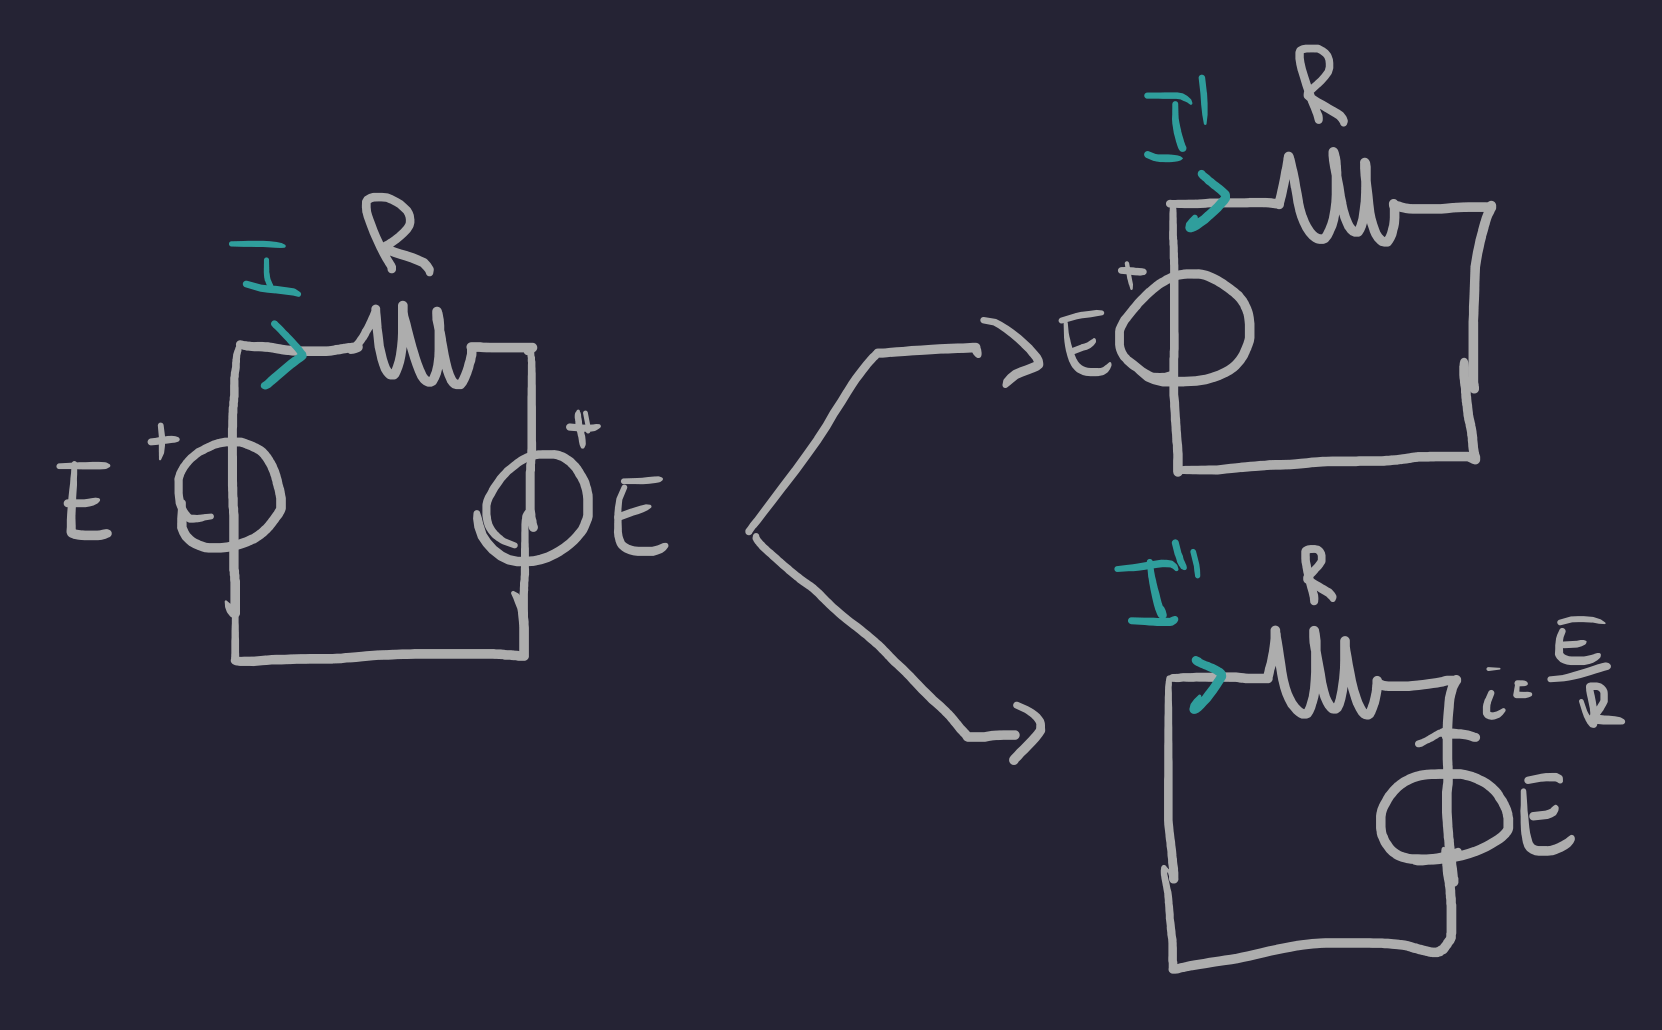 I
R
+
E
+
E
I'
R
+
E
I"
R
i = E/R
E